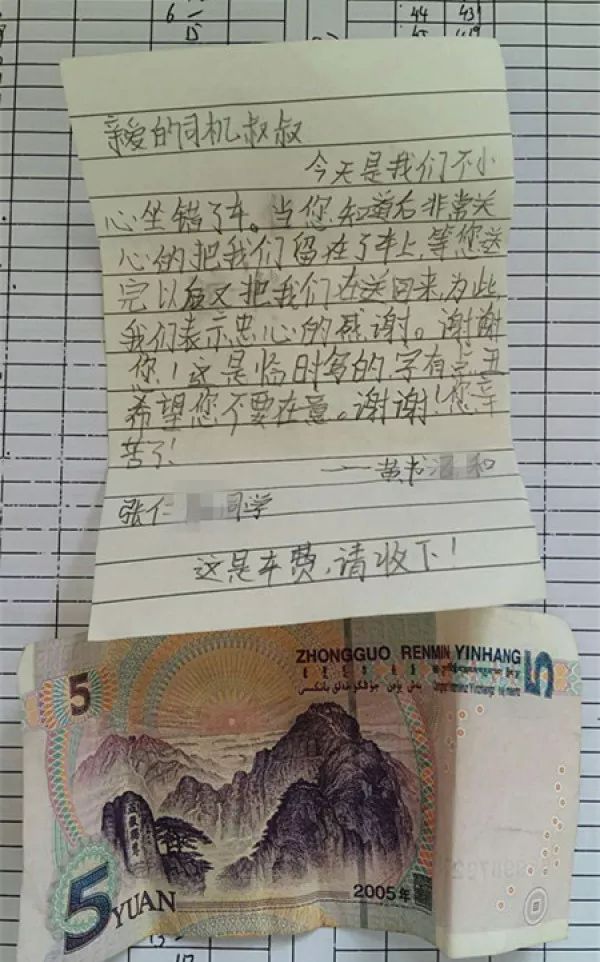 6
15
44 43
45 419
亲爱的司机叔叔
今天是我们不小
心坐错了车。当您知道右非常关
心的把我们留在了车上,等您送
完以后又把我们在送回来,为此,
我们表示忠心的感谢。谢谢
您!这是临时写的,字有点丑
希望您不要在意。谢谢!您辛
苦了!
——黄书 和
张仁 同学
这是车费,请收下!
ZHONGGUO RENMIN YINHANG
5
5
5 YUAN
2005年
13
17